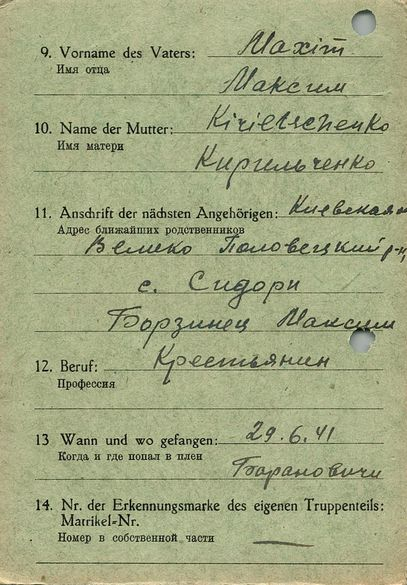 9. Vorname des Vaters: Maxim
Имя отца
Максим
10. Name der Mutter: Kirieltschenko
Имя матери
Кирильченко
11. Anschrift der nächsten Angehörigen: Киевская
Адрес ближайших родственников
Велико Половецкий р-н
с. Сидори
Борзинец Максим
12. Beruf: Крестьянин
Профессия
13 Wann und wo gefangen: 29.6.41
Когда и где попал в плен
Барановичи
14. Nr. der Erkennungsmarke des eigenen Truppenteils:
Matrikel-Nr.
Номер в собственной части —